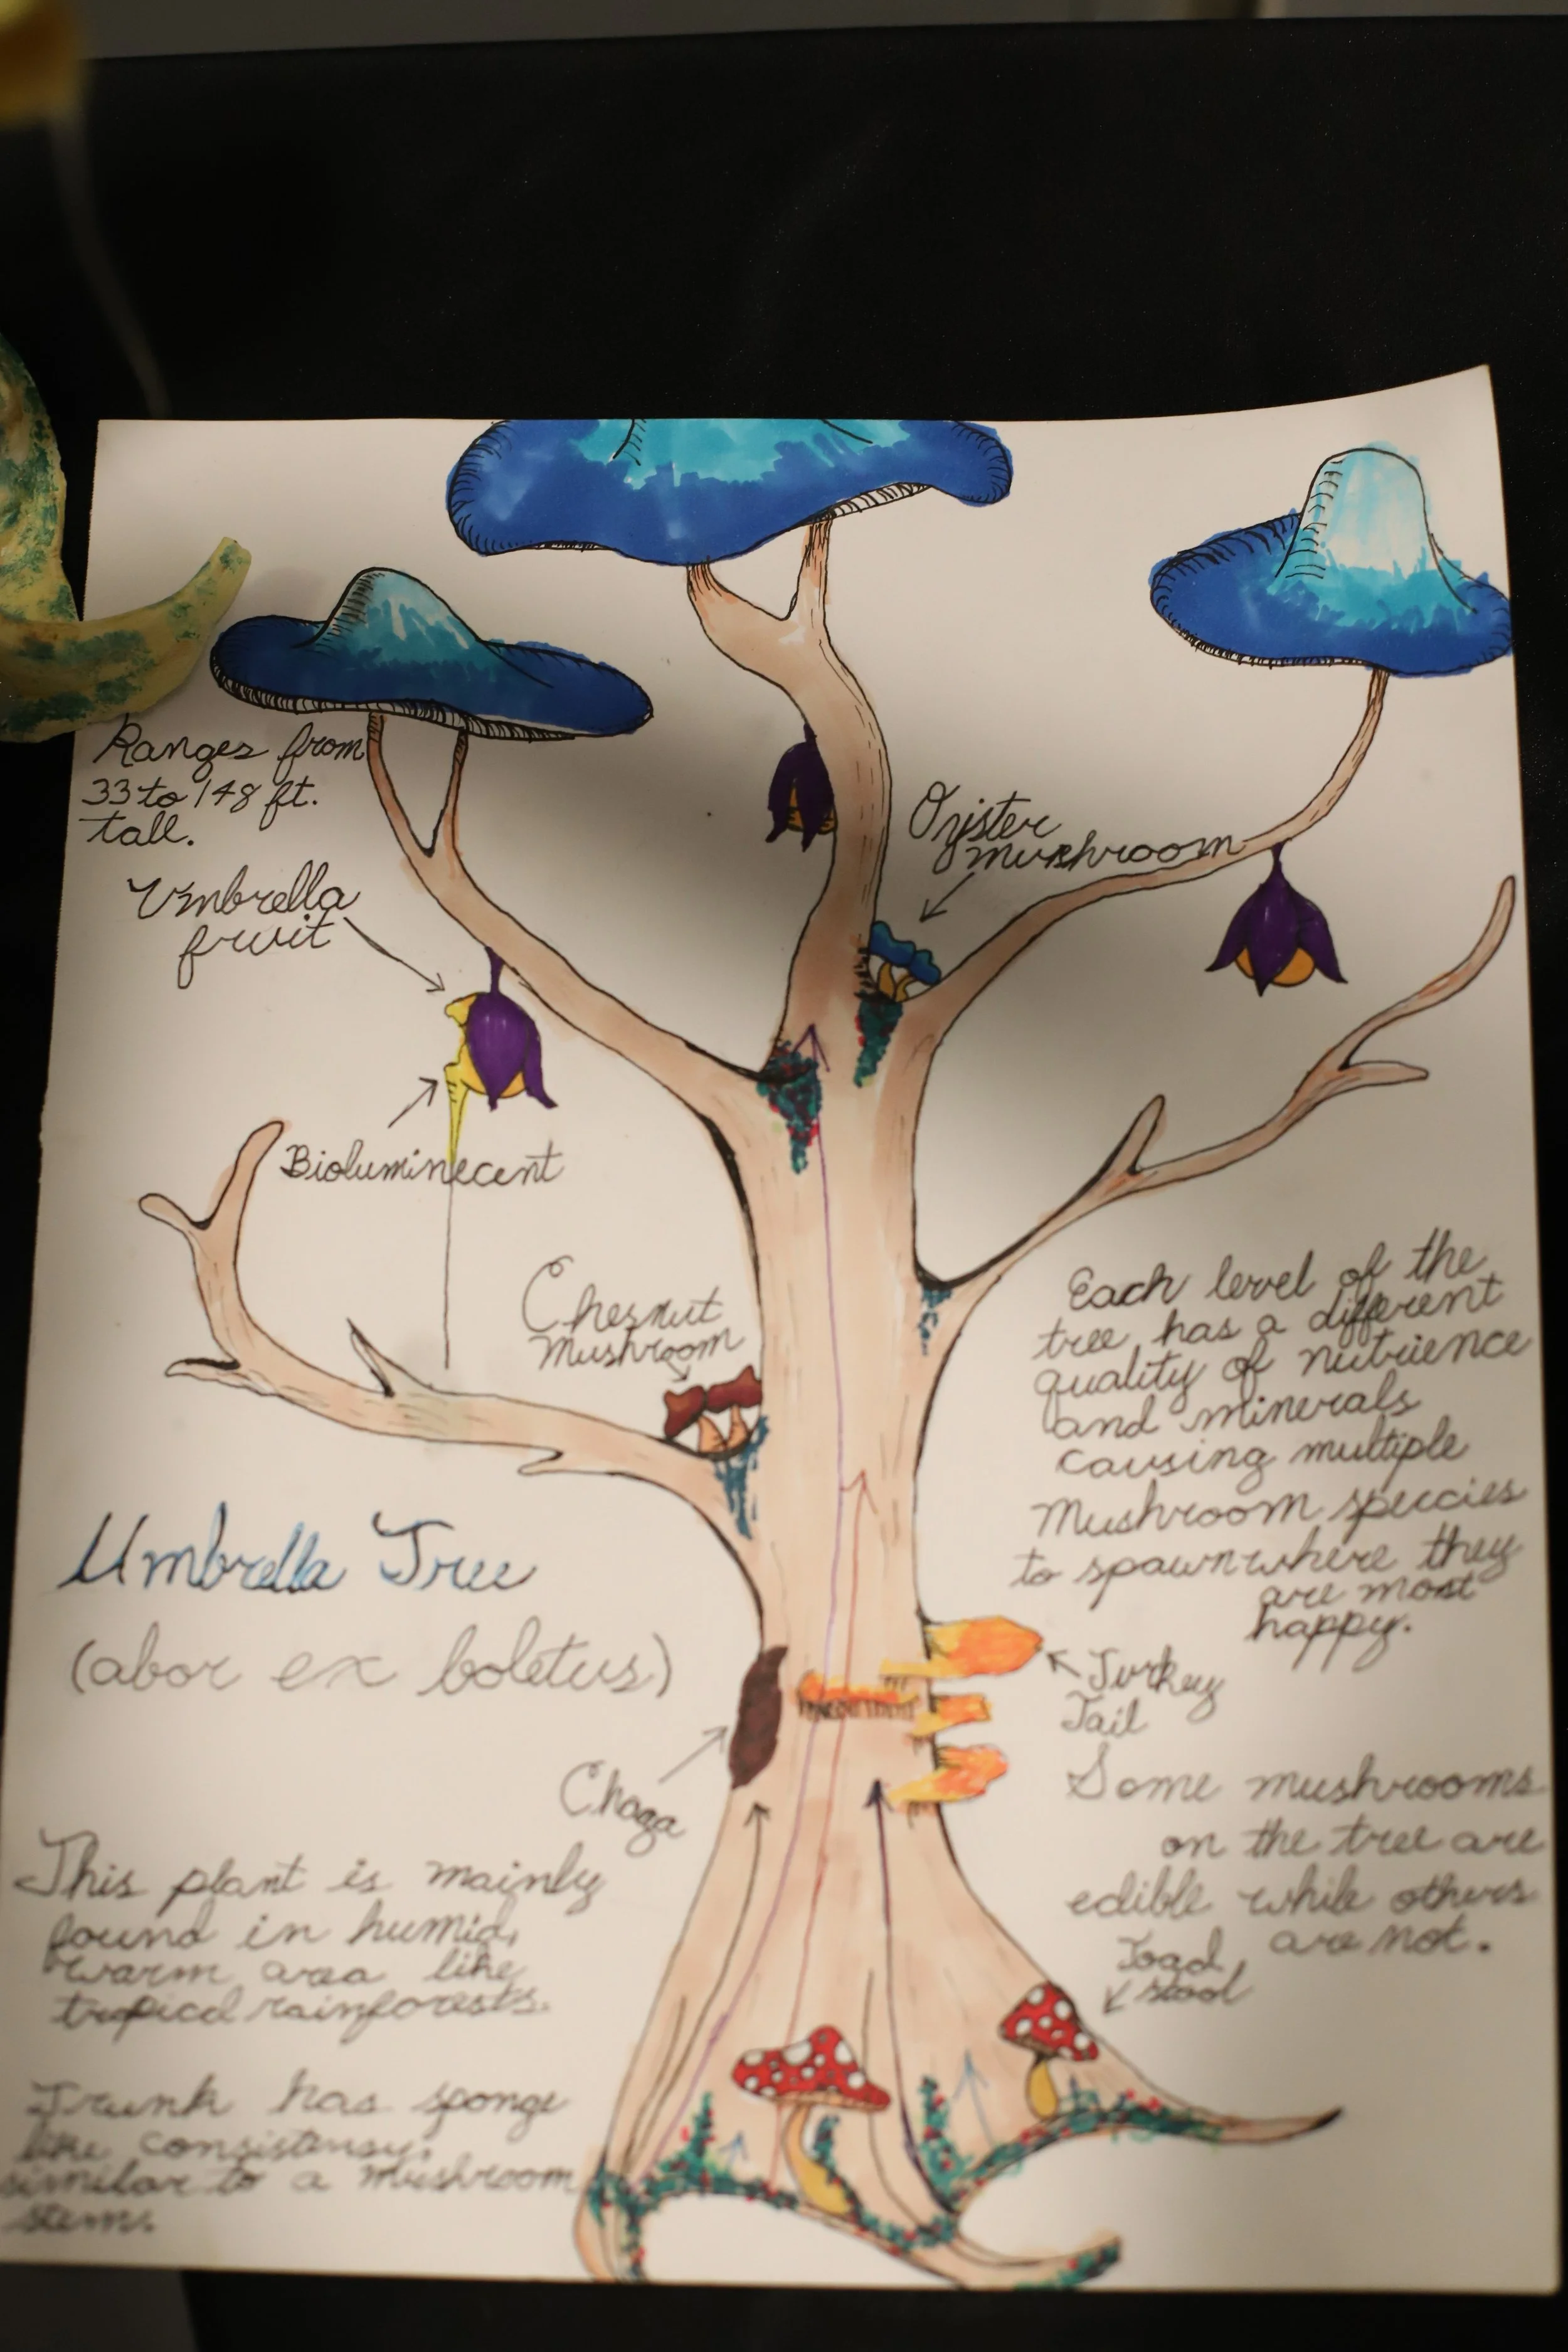 Ranges from
33 to 148 ft.
tall.
Umbrella
fruit
Bioluminecent
Oyister
mushroom
Chesnut
Mushroom
Each level of the
tree has a different
quality of nutrience
and minerals
causing multiple
Mushroom speccies
to spawn where they
are most
happy.
Umbrella Tree
(abor ex boletus)
Turkey
Tail
Chaga
Some mushrooms
on the tree are
edible while others
are not.
Toad
stool
This plant is mainly
found in humid,
warm area like
tropical rainforests.
Trunk has sponge
like consistensy,
similar to a mushroom
stem.